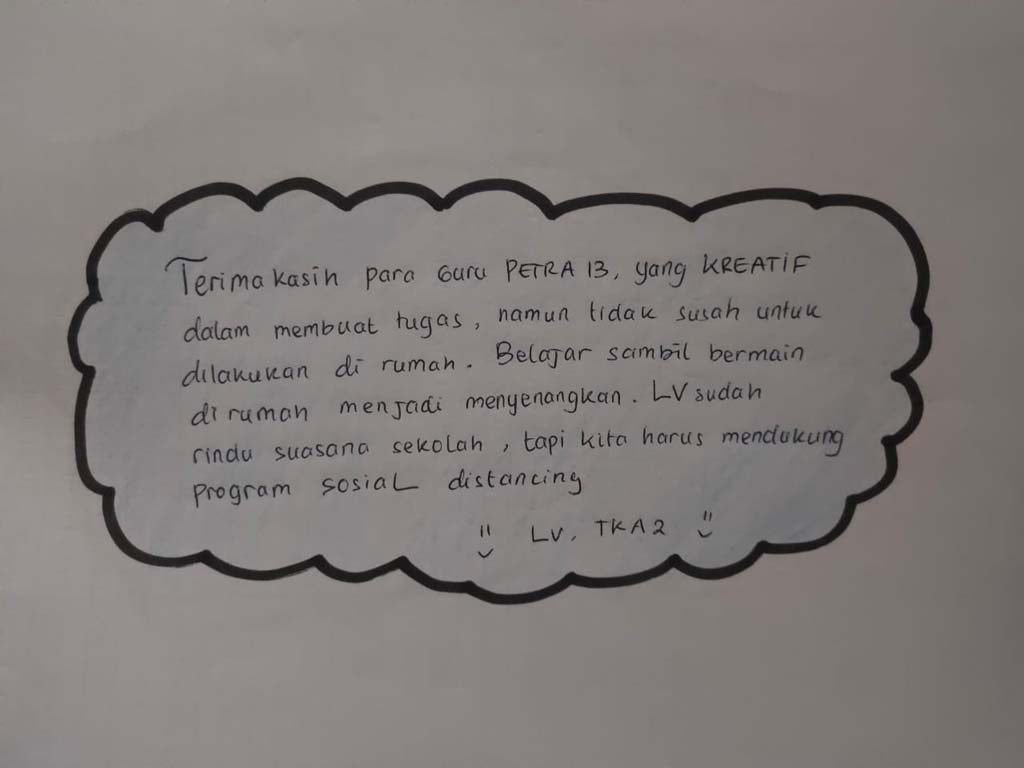 Terima kasih para Guru PETRA 13, yang KREATIF
dalam membuat tugas, namun tidak susah untuk
dilakukan di rumah. Belajar sambil bermain
di rumah menjadi menyenangkan. LV sudah
rindu suasana sekolah, tapi kita harus mendukung
program sosial distancing
LV, TKA2